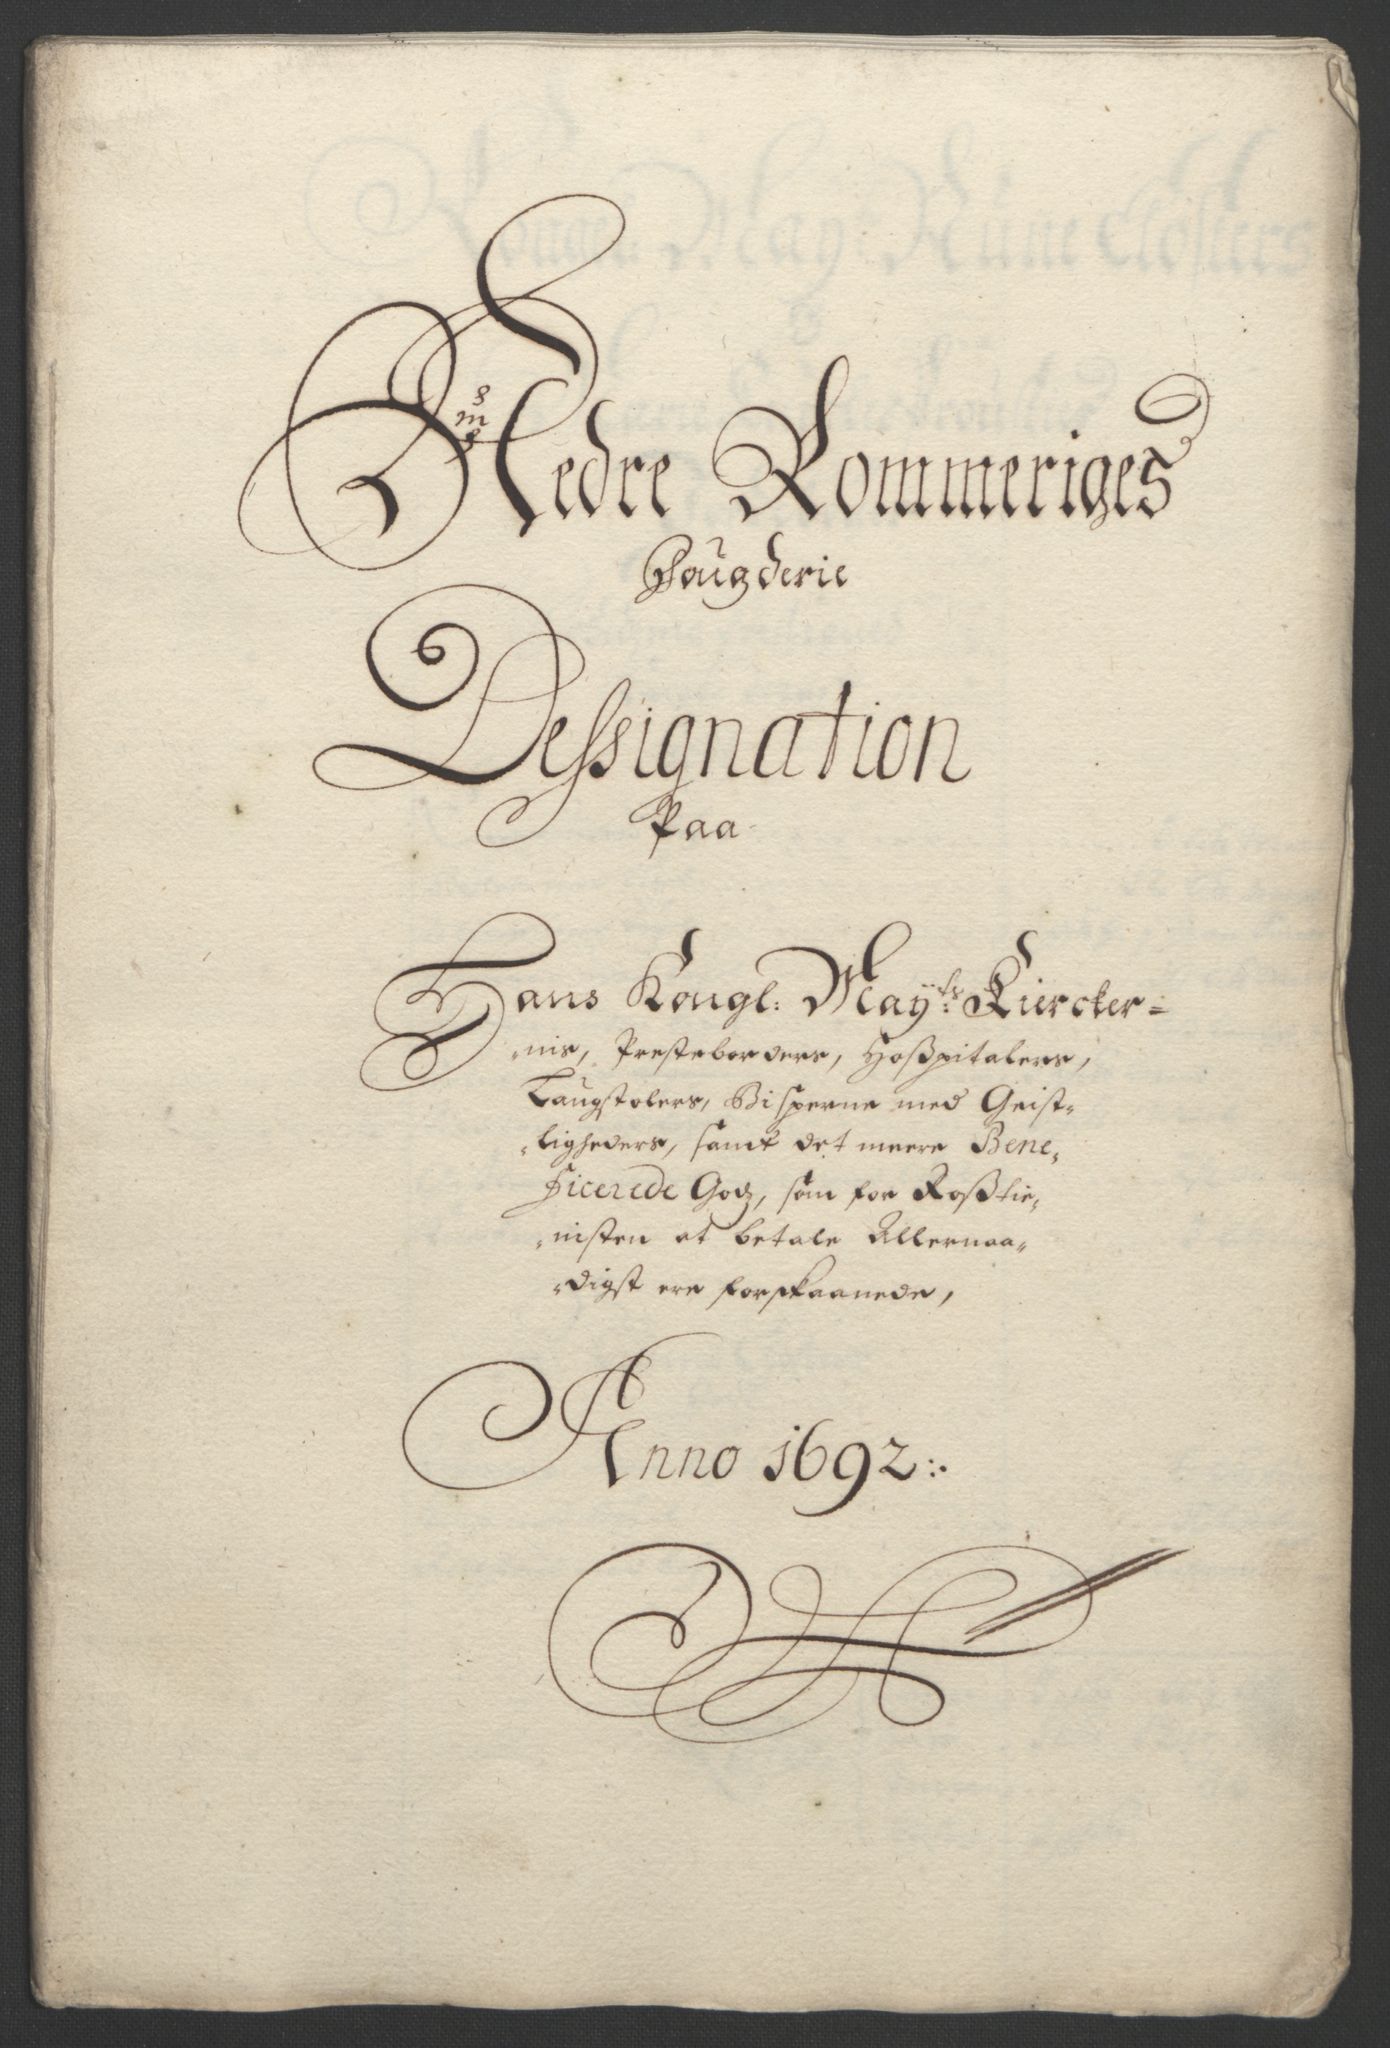 Nedre Rommeriges
Fougderie
Dessignation
Paa
Hans Kongl: Mayts Kiercker=
nis, Presteborders, Hoßpitalers,
Laugstolers, Bisperne med Geist-
ligheders, samt det meere Bene,
ficerede Godz, som for Roßtie,
nisten at betale Allernaa,
digst ere forskaanede,
Anno 1692